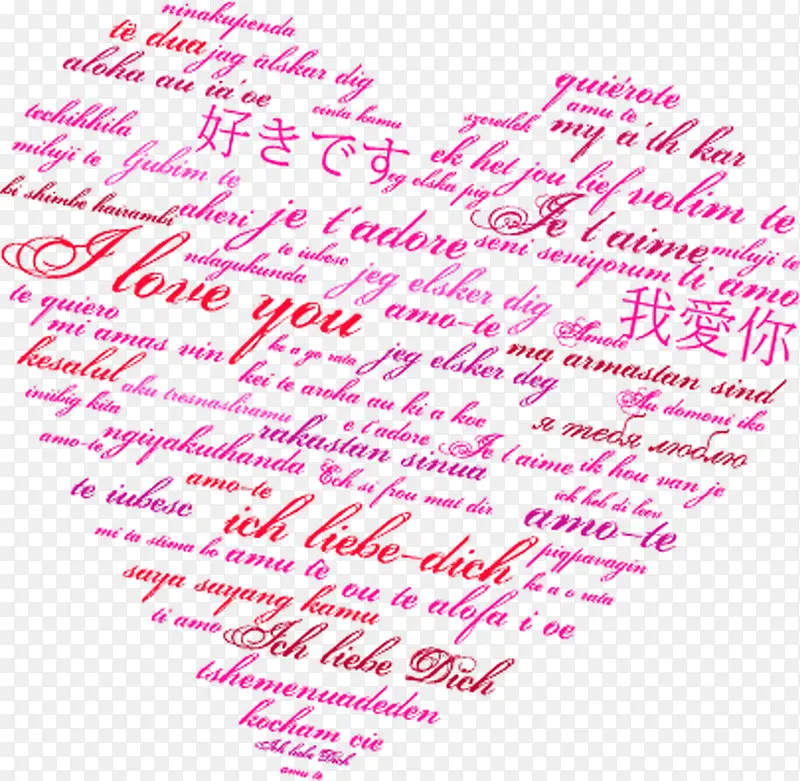 ninakupenda
të dua
jag älskar dig
aloha au ia'oe
quiérote
amu te
cinta kamu
szeretlek
my a'th kar
techihhila
好きです
miluji te
ljubim te
ek het jou lief
volim te
eg elska pig
ki shimbe kairambi
aheri
je t'adore
Je t'aime
miluji te
seni seviyorum
ti amo
te iubesc
ndagukunda
I love you
jeg elsker dig
我愛你
te quiero
amo-te
Amote
mi amas vin
ke a go rata
jeg elsker deg
ma armastan sind
kesalul
kei te aroha au ki a koe
aku tresnasliramu
Au domoni iko
iniibig kita
я тебя люблю
e t'adore
rakastan sinua
Je t'aime
ik hou van je
amo-te
ngiyakuthanda
Ech si frou mat dir
amo-te
te iubesc
ick heb di leev
amo-te
ich liebe-dich
pigpavagin
mi ta stima bo
amu te
ke a o rata
saya sayang kamu
ou te alofa i oe
ti amo
Ich liebe Dich
tshemenuadeden
kocham cie
Ich liebe Dich
amu te